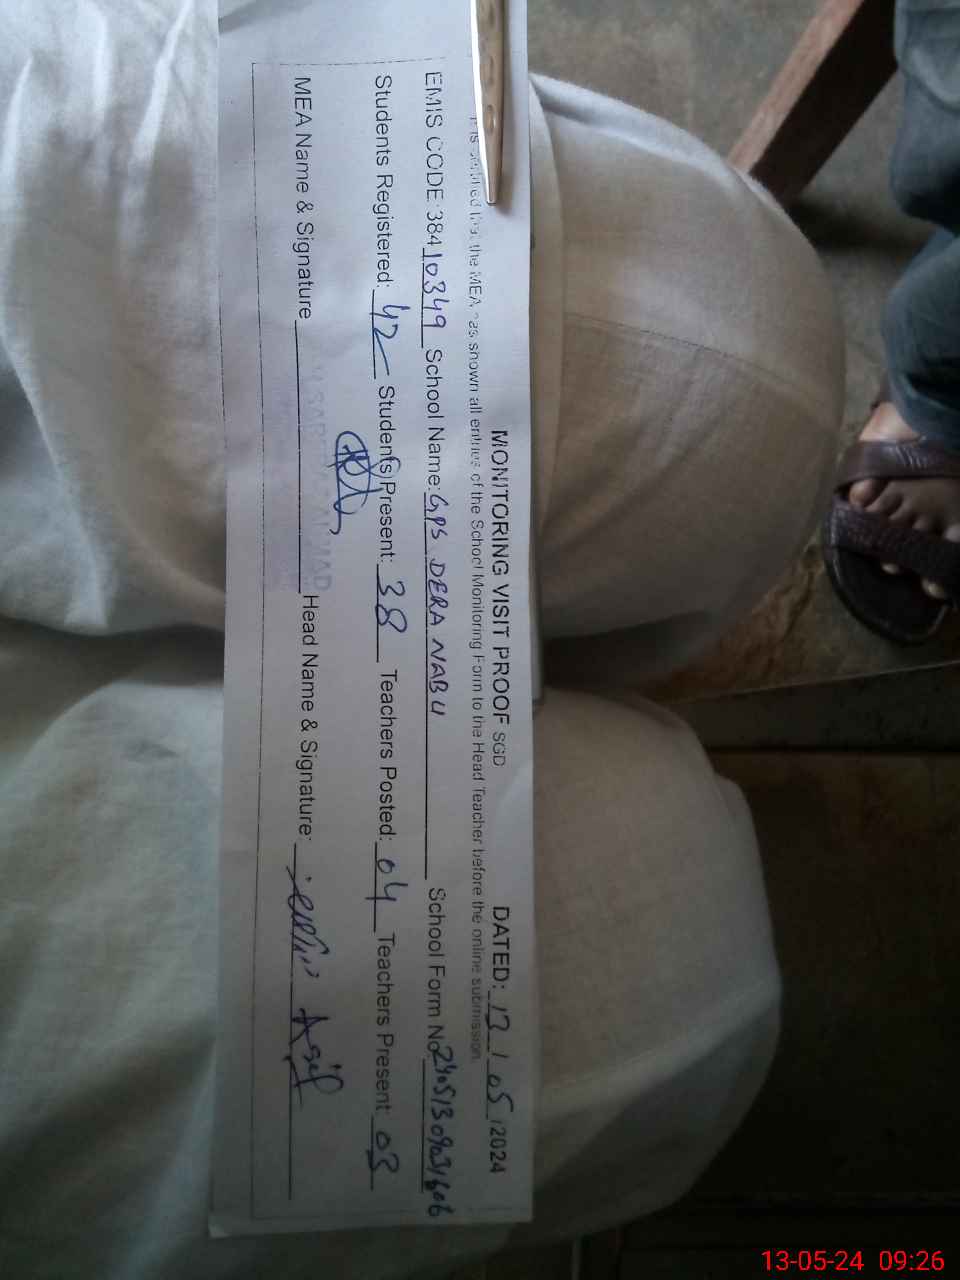 MONITORING VISIT PROOF SGD DATED: 13 / 05 / 2024
the MEA has shown all entries of the School Monitoring Form to the Head Teacher before the online submission.
EMIS CODE: 38410349 School Name: GPS DERA NABU School Form No
Students Registered: 42 Students Present: 38 Teachers Posted: 04 Teachers Present: 03
MEA Name & Signature Head Name & Signature: Asif
13-05-24 09:26